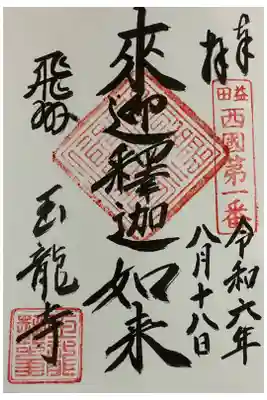 奉拝
益田
西國第一番
令和六年
八月十八日
來迎釋迦如来
飛州
玉龍寺